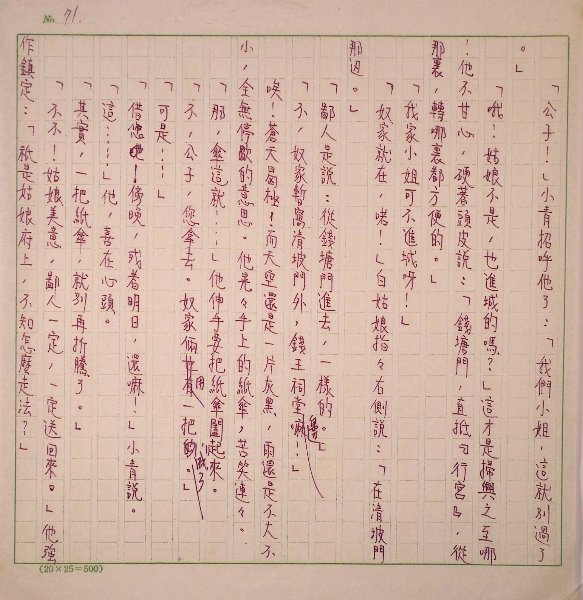 No. 71.
。」
「公子!」小青招呼他了:「我們小姐,這就別過了
「哦!姑娘不是,也進城的嗎?」這才是掃興之至哪
!他不甘心,硬著頭皮說:「錢塘門,直抵『行宮』,從
那裏,轉哪裏都方便的。」
「我家小姐可不進城呀!」
「奴家就在,啫!」白姑娘指々右側說:「在清坡門
那迎。」
「鄙人是說:從錢塘門進去,一樣的。」
「不,奴家暫寓清坡門外,錢王祠堂邊嘛!」
唉!蒼天曷極!而天空還是一片灰黑,雨還是不大不
小,全無停歇的意思。他晃々手上的紙傘,苦笑連々。
「那,傘這就……」他伸手要把紙傘闔起來。
「不,公子,您拿去。奴家倆用一把成了。」
可是……」
「借您吧!傍晚,或者明日,還嘛!」小青說。
「這……」他,喜在心頭。
「其實,一把紙傘,就別再折騰了。」
「不不!姑娘美意,鄙人一定,一定送回來。」他強
作鎮定:「祇是姑娘府上,不知怎麼走法?」
(20×25=500)